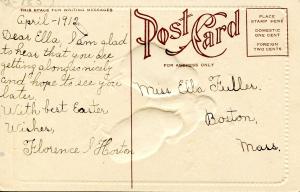 THIS SPACE FOR WRITING MESSAGES
April - 1912
Dear Ella, I am glad
to hear that you are
getting along so nicely
and hope to see you
later
With best Easter
Wishes,
Florence S Horton
Post Card
FOR ADDRESS ONLY
PLACE
STAMP HERE
DOMESTIC
ONE CENT
FOREIGN
TWO CENTS
Miss Ella Fuller.
Boston,
Mass.